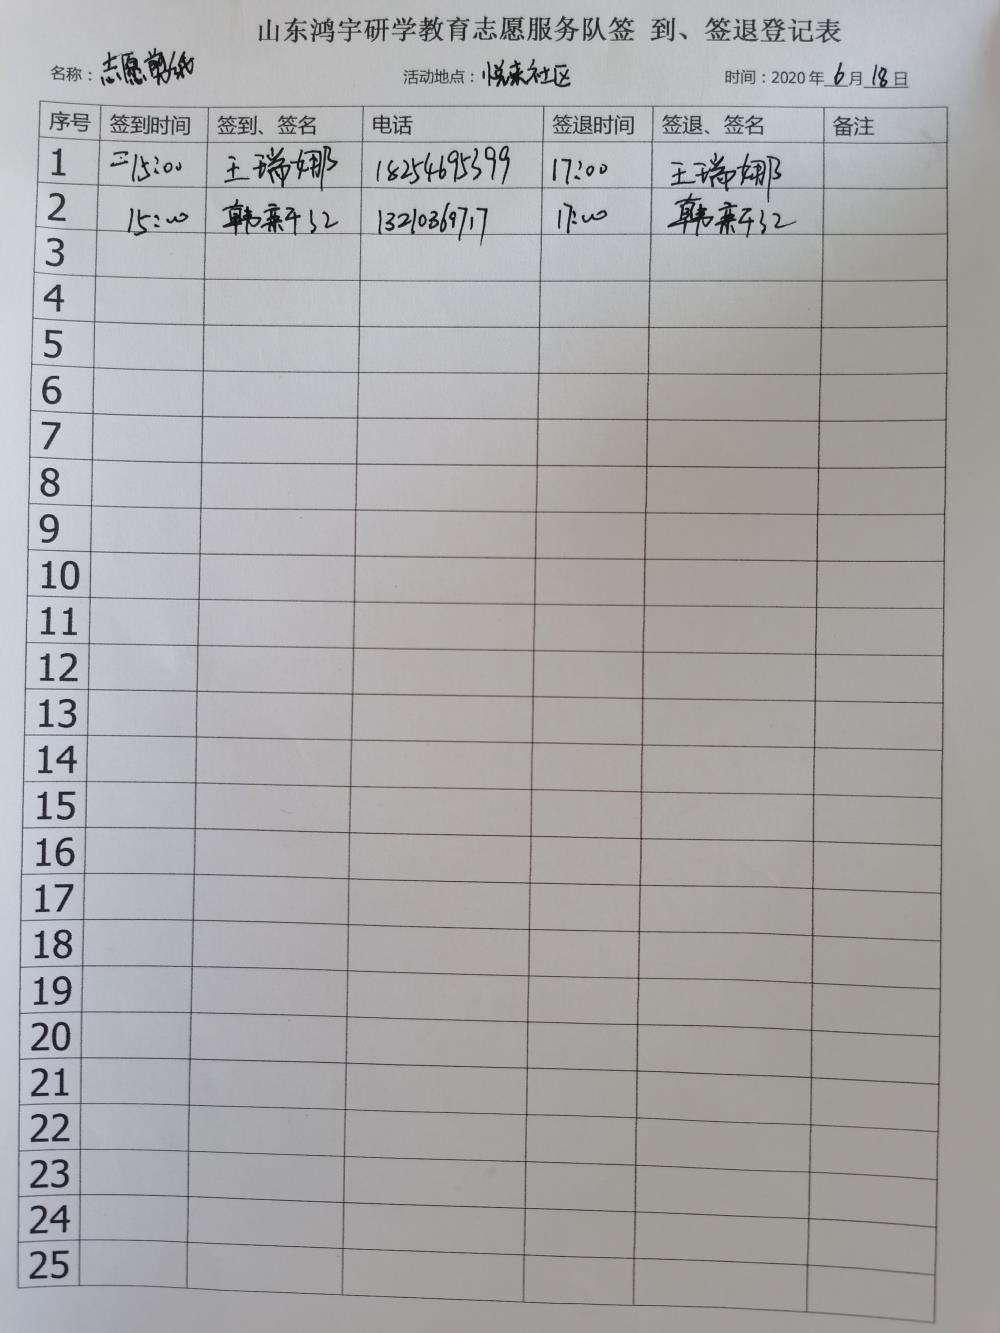 山东鸿宇研学教育志愿服务队签 到、签退登记表
名称：志愿剪纸 活动地点：悦来社区 时间：2020年6月18日
序号 签到时间 签到、签名 电话 签退时间 签退、签名 备注
1 15:00 王瑞娜 18254695399 17:00 王瑞娜
2 15:00 韩 13210369717 17:00 韩
3
4
5
6
7
8
9
10
11
12
13
14
15
16
17
18
19
20
21
22
23
24
25